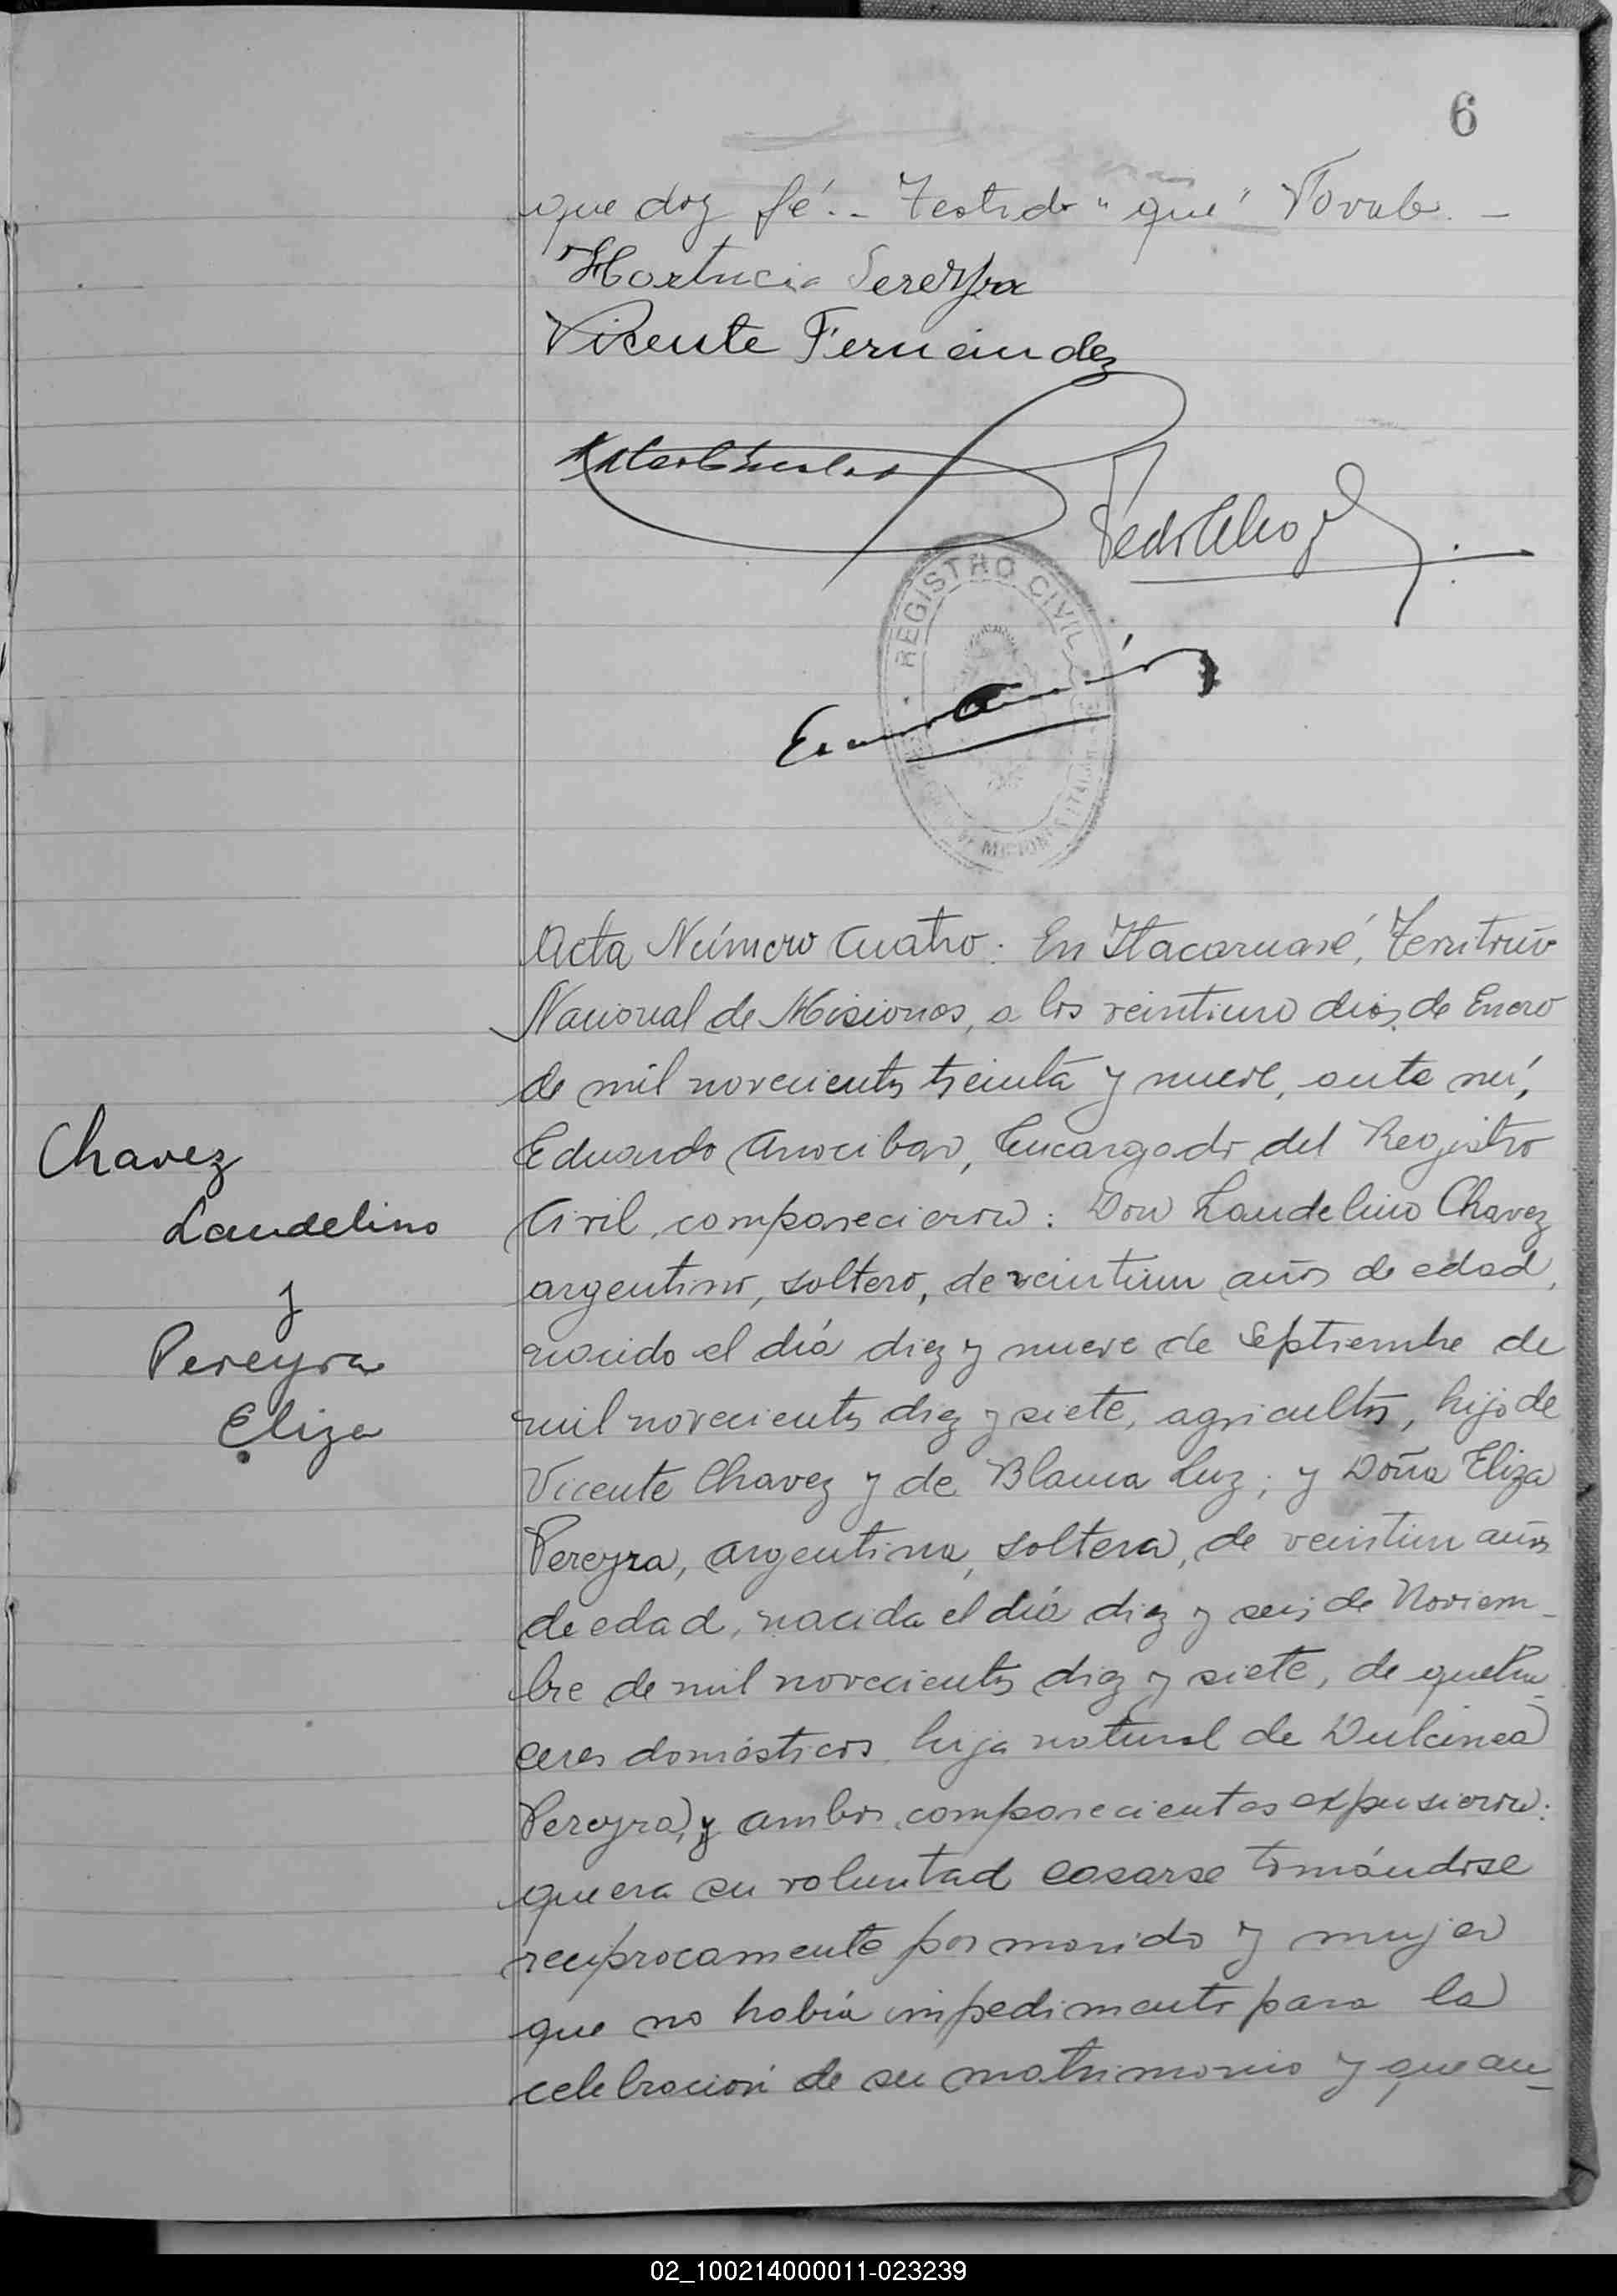 6
que doy fé.- Testado "que" No vale. -
Hortencia Pereyra
Vicente Fernández
REGISTRO CIVIL
Acta Número Cuatro: En Itacaruaré, Territorio
Nacional de Misiones, a los veintiuno dias de Enero
de mil novecientos treinta y nueve, ante mí,
Eduardo Arocibar, Encargado del Registro
Civil, comparecieron: Don Laudelino Chavez
argentino, soltero, de veintiun años de edad,
nacido el día diez y nueve de Septiembre de
mil novecientos diez y siete, agricultor, hijo de
Vicente Chavez y de Blanca Luz; y Doña Eliza
Pereyra, argentina, soltera, de veintiun años
de edad, nacida el día diez y seis de Noviem-
bre de mil novecientos diez y siete, de queha-
ceres domésticos, hija natural de Dulcinea
Pereyra, y ambos comparecientes expusieron:
que era su voluntad casarse tomándose
reciprocamente por marido y mujer
que no había impedimento para la
celebración de su matrimonio y que au-
Chavez
Laudelino
y
Pereyra
Eliza
02_100214000011-023239